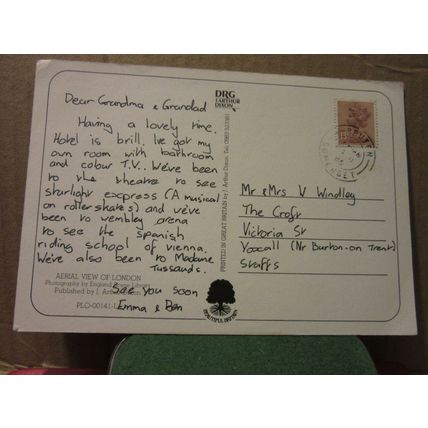 DRG
J. ARTHUR
DIXON
Dear Grandma & Grandad
Having a lovely time.
Hotel is brill. I've got my
own room with bathroom
and colour T.V.. We've been
to the theatre to see
starlight express (A musical
on rollerskates) and we've
been to wembley arena
to see the spanish
riding school of vienna.
We've also been to Madame
Tussauds.
See you soon
Emma & Ben
AERIAL VIEW OF LONDON
Photography by England Library
Published by J. Arthur
PLO-00141-
PRINTED IN GREAT BRITAIN by J. Arthur Dixon. Tel:
BEAUTIFUL BRITAIN
SOMERSET
Mr & Mrs V Windley
The Croft
Victoria St
Yoxall (Nr Burton-on Trent)
Staffs